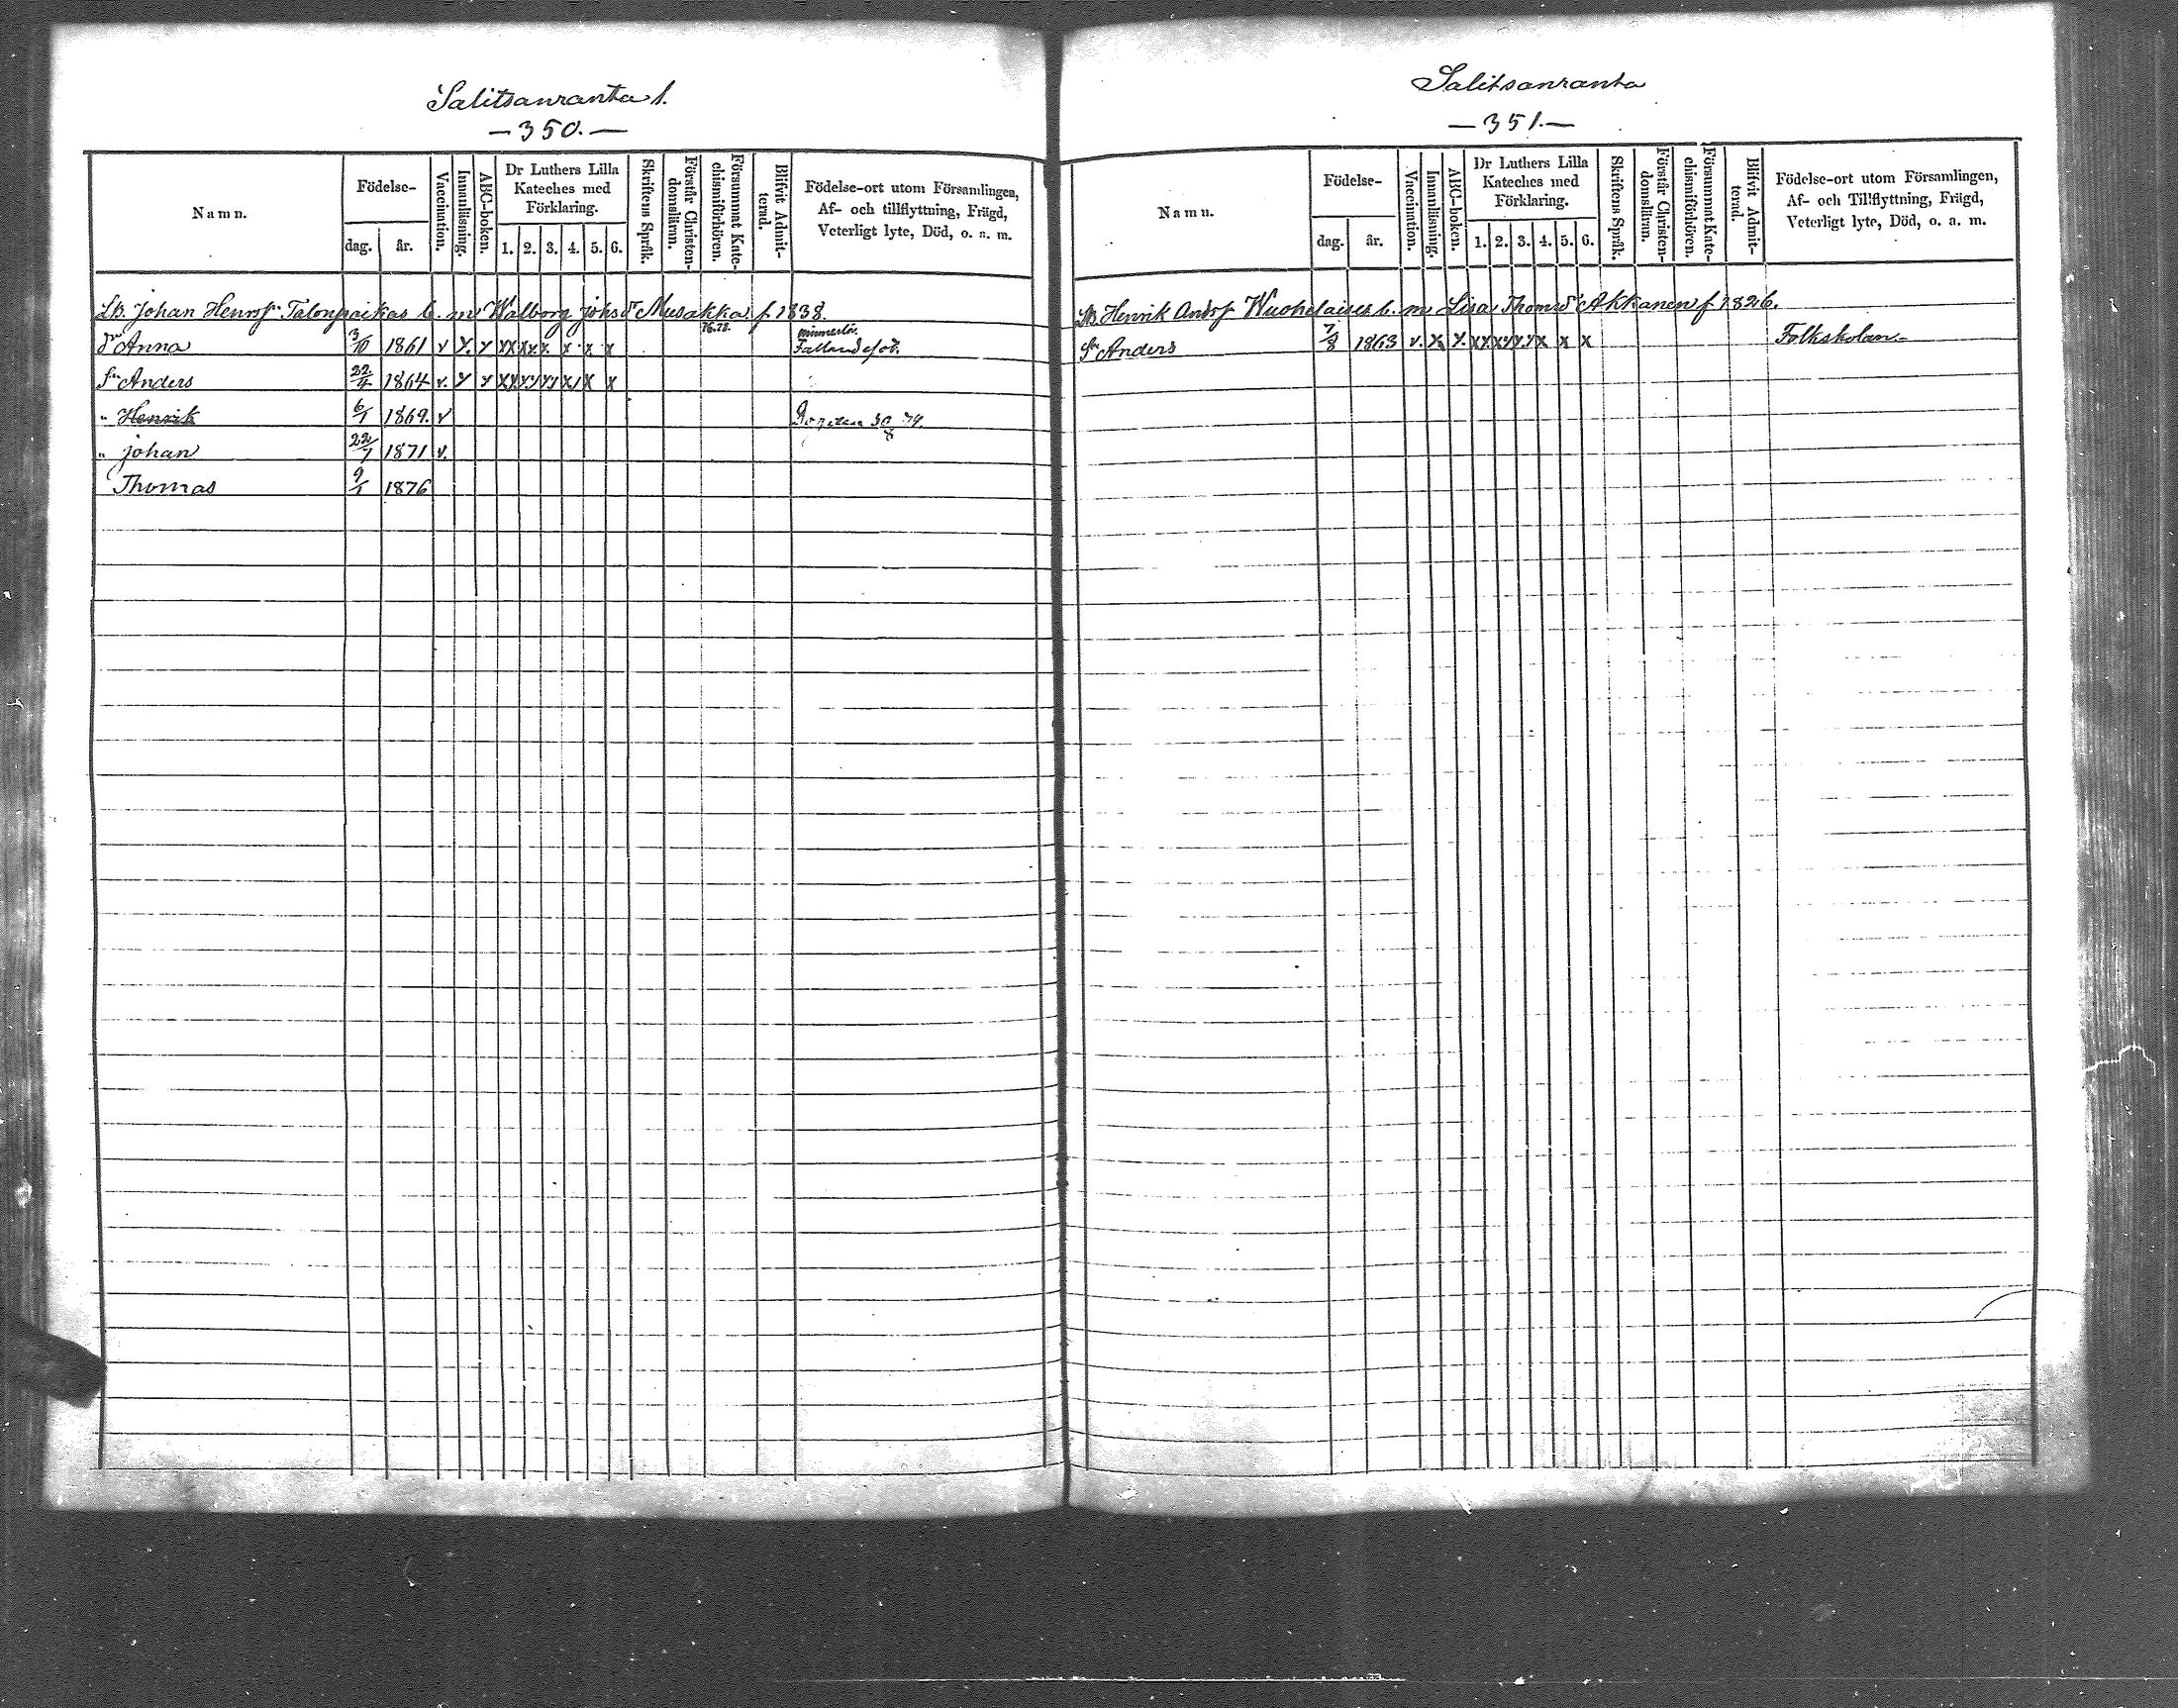 Salitsanranta 1.
— 350. —
Namn.
Födelse-
dag.
år.
Vaccination.
Innanläsning.
ABC-boken.
Dr Luthers Lilla
Kateches med
Förklaring.
1. 2. 3. 4. 5. 6.
Skriftens Språk.
Förstår Christen-
domsläran.
Försummat Kate-
chismiförhören.
Blifvit Admit-
terad.
Födelse-ort utom Församlingen,
Af- och tillflyttning, Frägd,
Veterligt lyte, Död, o. a. m.
Johan Henrsf. Talonpoikas b. m. Walborg Johsdr Musakka f 1838.
dr Anna 3/10 1861 v x x x x x x x x x x 76.78. minneslös. Fallandesot.
sn Anders 22/4 1864 v. x x x x x x x x x x x x
" Henrik 6/1 1869. v 30 74.
" Johan 22/7 1871 v.
Thomas 9/1 1876
Salitsanranta
— 351. —
Namn.
Födelse-
dag.
år.
Vaccination.
Innanläsning.
ABC-boken.
Dr Luthers Lilla
Kateches med
Förklaring.
1. 2. 3. 4. 5. 6.
Skriftens Språk.
Förstår Christen-
domsläran.
Försummat Kate-
chismiförhören.
Blifvit Admit-
terad.
Födelse-ort utom Församlingen,
Af- och Tillflyttning, Frägd,
Veterligt lyte, Död, o. a. m.
Henrik Andsf Wuohelaises b. m. Lisa Thomsdr Akkanen f 1826.
sn Anders 7/8 1863 v. x x. x x x x x x x x x Folkskolan